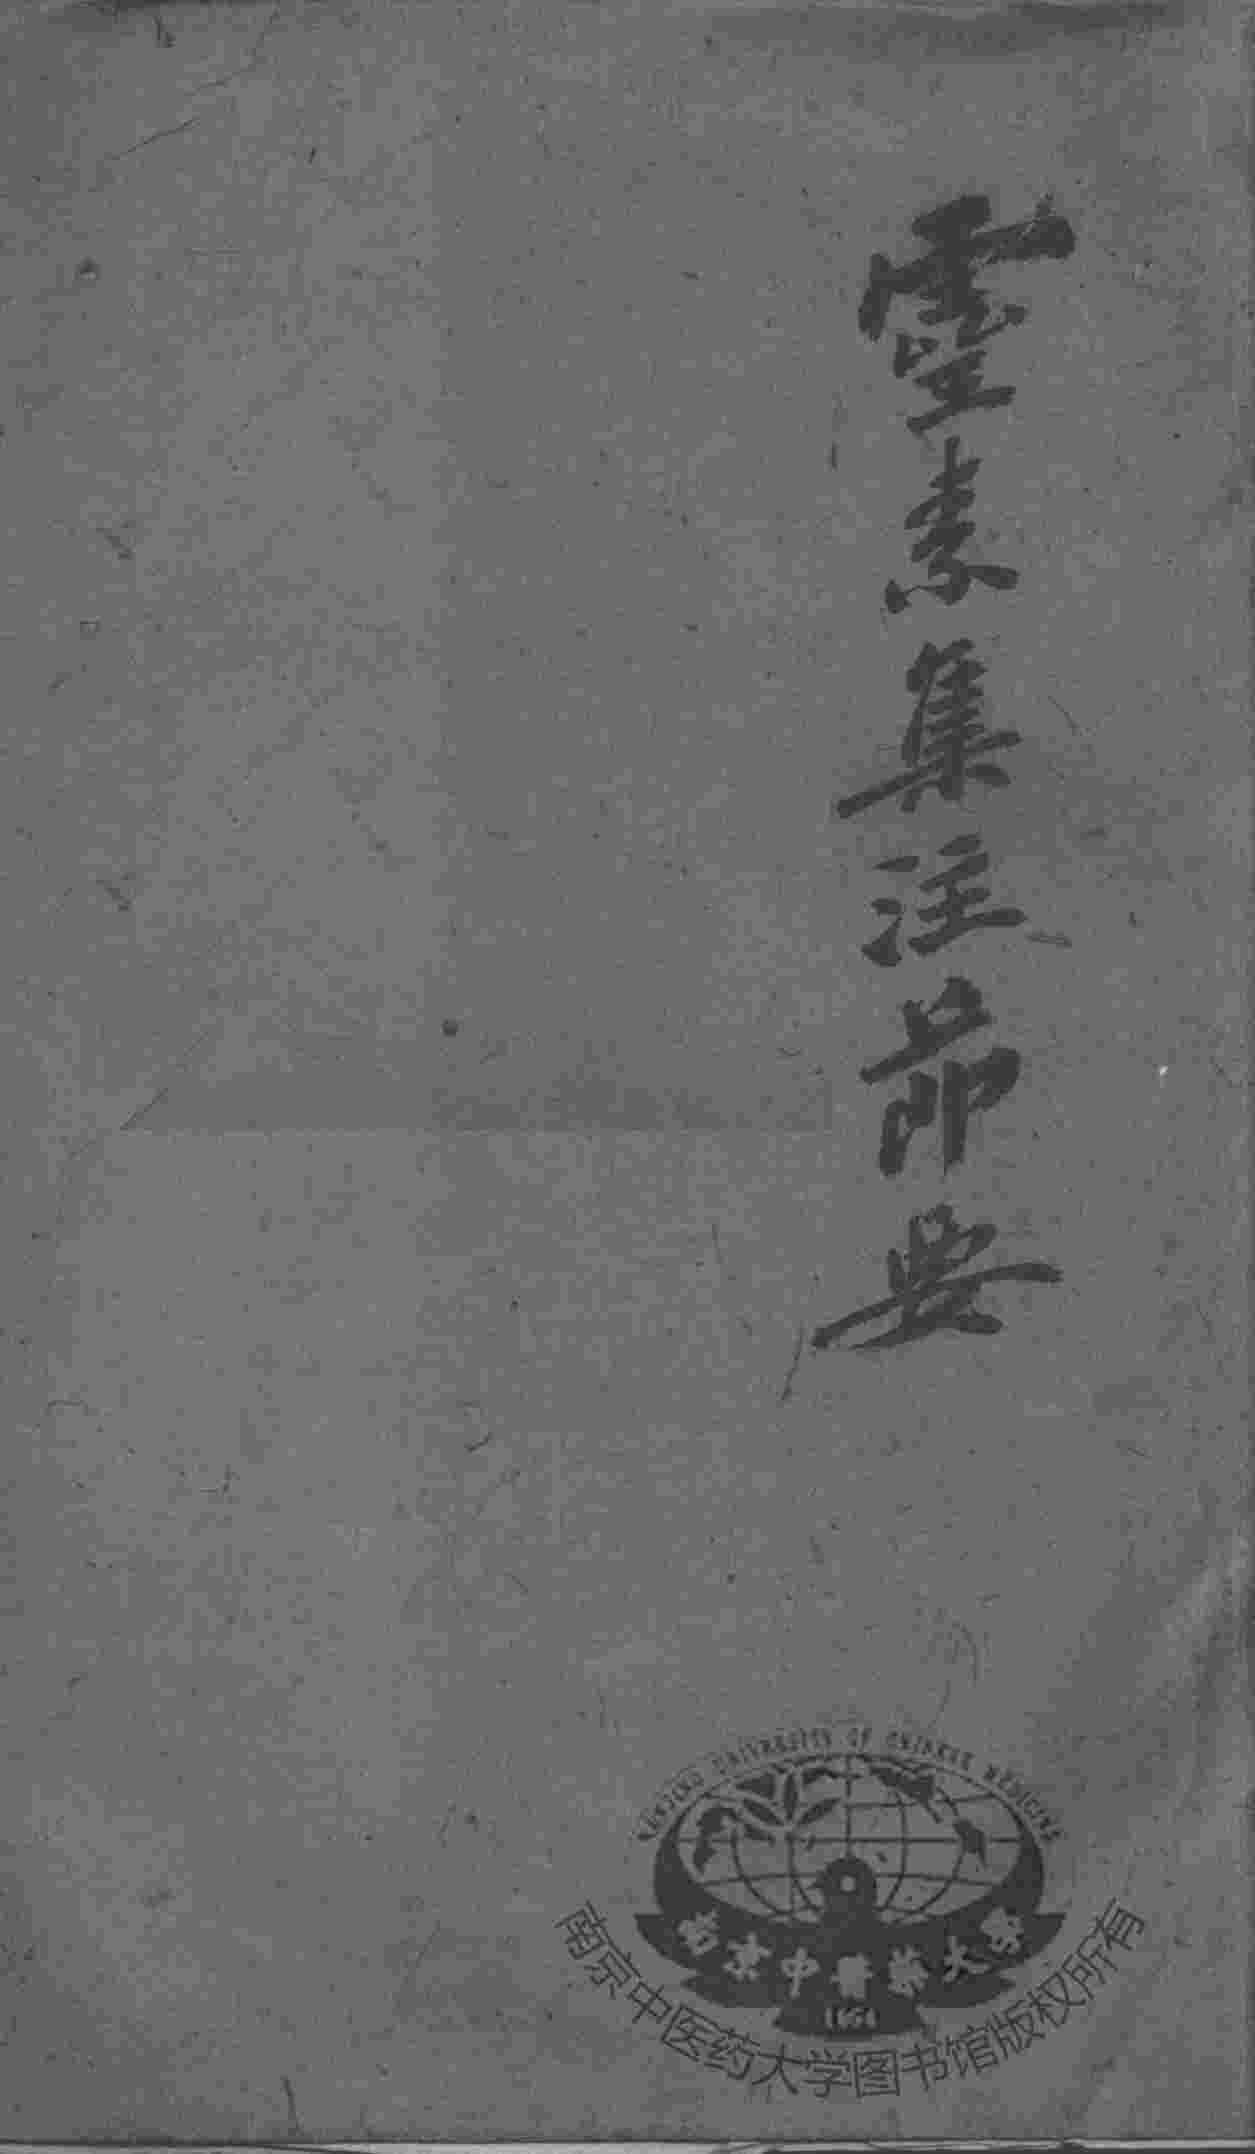 靈素集注節要
NANJING UNIVERSITY OF CHINESE MEDICINE
南京中醫藥大學
1954
南京中医药大学图书馆版权所有